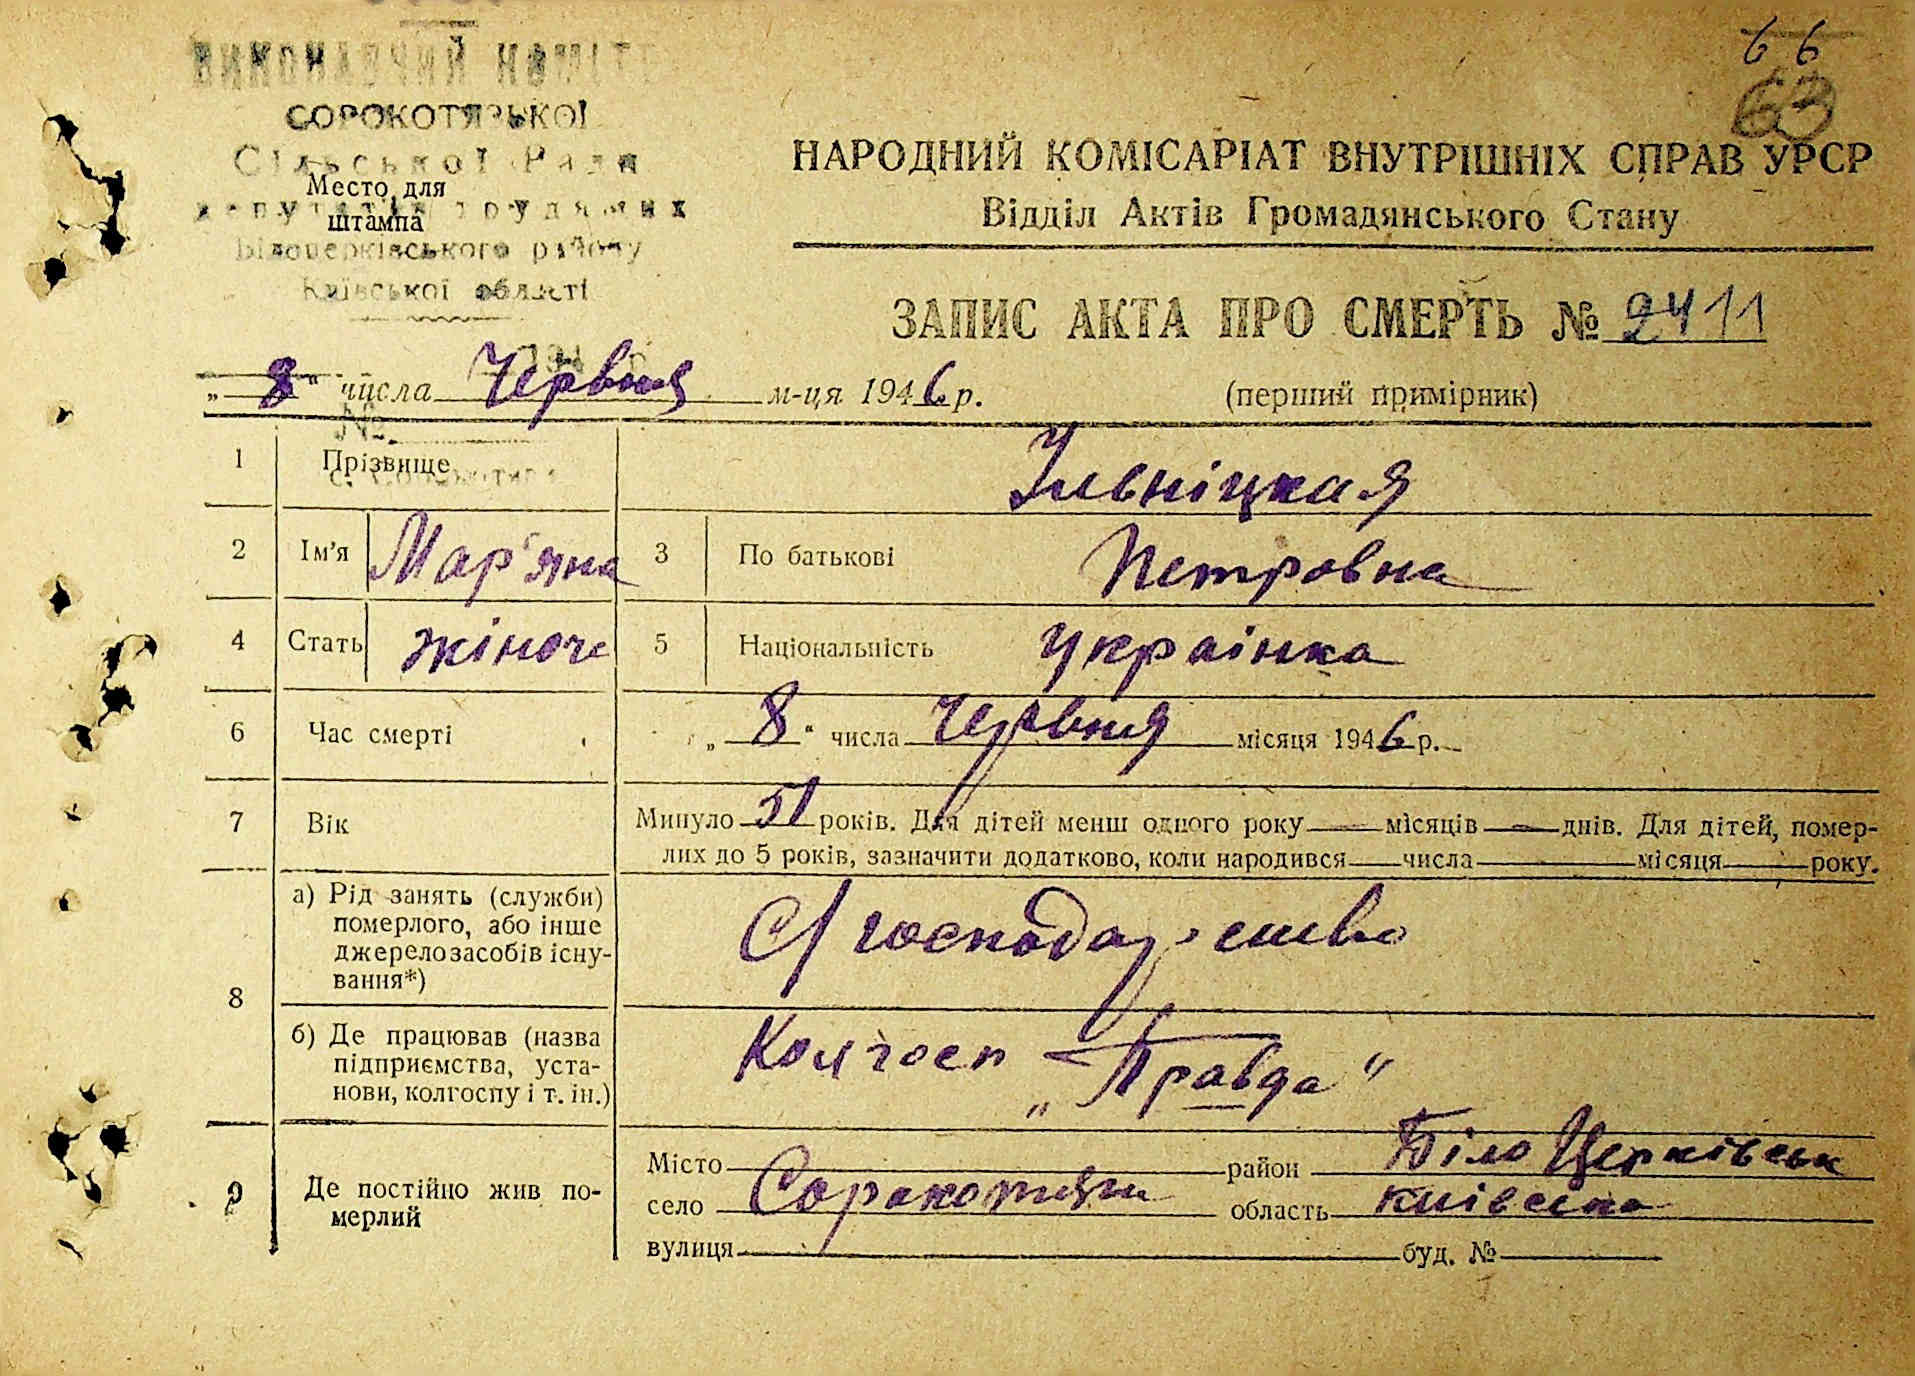 66
63
ВИКОНАВЧИЙ КОМІТЕТ
СОРОКОТЯЗЬКОЇ
Сільської Ради
депутатів трудящих
Білоцерківського району
Київської області
Место для
штампа
НАРОДНИЙ КОМІСАРІАТ ВНУТРІШНІХ СПРАВ УРСР
Відділ Актів Громадянського Стану
ЗАПИС АКТА ПРО СМЕРТЬ № 2411
„8“ числа Червня м-ця 1946 р.
(перший примірник)
№
1 Прізвище Ільніцкая
2 Ім'я Мар'яна 3 По батькові Петровна
4 Стать жіноче 5 Національність українка
6 Час смерті „8“ числа Червня місяця 1946 р.
7 Вік Минуло 51 років. Для дітей менш одного року — місяців — днів. Для дітей, помер-
лих до 5 років, зазначити додатково, коли народився — числа — місяця — року.
8 а) Рід занять (служби)
померлого, або інше
джерело засобів існу-
вання*)
С/господарство
б) Де працював (назва
підприємства, уста-
нови, колгоспу і т. ін.)
Колгосп „Правда“
9 Де постійно жив по-
мерлий
Місто район Біло Церківськ
село Сорокотяги область київська
вулиця буд. №